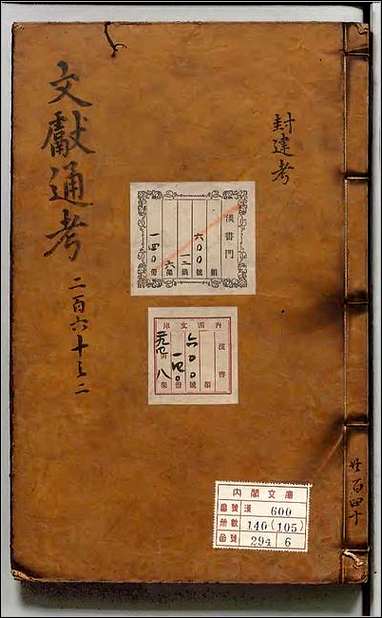 文獻通考
二百六十之二
封建考
漢書門
六〇〇
號
一二
函
六
架
一四〇
冊
內閣文庫
漢書
六〇〇
號
一四〇
冊
八
架
內閣文庫
番號 漢 600
冊數 140(105)
函號 294 6
共百四十